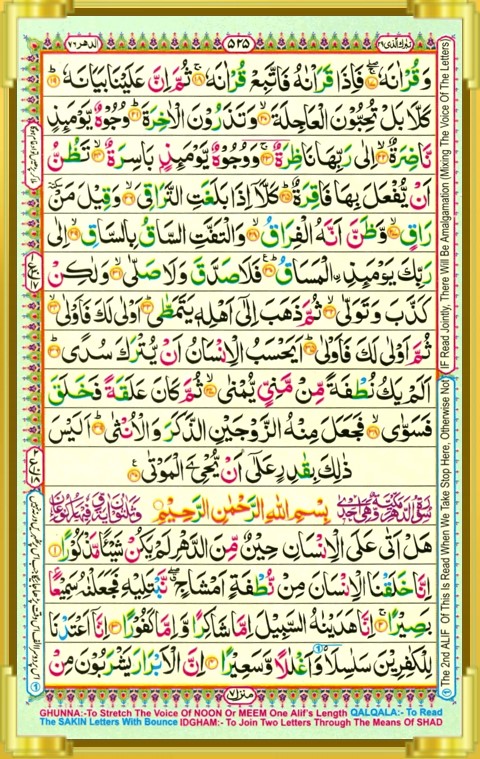 الدهر ٧٦
٥٢٥
تبٰرك الذي ٢٩
وَ قُرْاٰنَهٗ ۚۖ‏﴿۱۷﴾ فَاِذَا قَرَاْنٰهُ فَاتَّبِعْ قُرْاٰنَهٗ ۚ‏﴿۱۸﴾ ثُمَّ اِنَّ عَلَيْنَا بَيَانَهٗ ؕ‏﴿۱۹﴾
كَلَّا بَلْ تُحِبُّوْنَ الْعَاجِلَةَ ۙ‏﴿۲۰﴾ وَتَذَرُوْنَ الْاٰخِرَةَ ؕ‏﴿۲۱﴾ وُجُوْهٌ يَّوْمَىِٕذٍ
نَّاضِرَةٌ ۙ‏﴿۲۲﴾ اِلٰى رَبِّهَا نَاظِرَةٌ ۚ‏﴿۲۳﴾ وَوُجُوْهٌ يَّوْمَىِٕذٍۭ بَاسِرَةٌ ۙ‏﴿۲۴﴾ تَظُنُّ
اَنْ يُّفْعَلَ بِهَا فَاقِرَةٌ ؕ‏﴿۲۵﴾ كَلَّاۤ اِذَا بَلَغَتِ التَّرَاقِىَ ۙ‏﴿۲۶﴾ وَقِيْلَ مَنْ ٚ
رَاقٍ ۙ‏﴿۲۷﴾ وَّظَنَّ اَنَّهُ الْفِرَاقُ ۙ‏﴿۲۸﴾ وَالْتَفَّتِ السَّاقُ بِالسَّاقِ ۙ‏﴿۲۹﴾ اِلٰى
رَبِّكَ يَوْمَىِٕذِ ۨالْمَسَاقُ ؕ‏﴿۳۰﴾ فَلَا صَدَّقَ وَلَا صَلّٰى ۙ‏﴿۳۱﴾ وَلٰكِنْ
كَذَّبَ وَتَوَلّٰى ۙ‏﴿۳۲﴾ ثُمَّ ذَهَبَ اِلٰٓى اَهْلِهٖ يَتَمَطّٰى ؕ‏﴿۳۳﴾ اَوْلٰى لَكَ فَاَوْلٰى ۙ‏﴿۳۴﴾
ثُمَّ اَوْلٰى لَكَ فَاَوْلٰى ؕ‏﴿۳۵﴾ اَيَحْسَبُ الْاِنْسَانُ اَنْ يُّتْرَكَ سُدًى ؕ‏﴿۳۶﴾
اَلَمْ يَكُ نُطْفَةً مِّنْ مَّنِىٍّ يُّمْنٰى ۙ‏﴿۳۷﴾ ثُمَّ كَانَ عَلَقَةً فَخَلَقَ
فَسَوّٰى ۙ‏﴿۳۸﴾ فَجَعَلَ مِنْهُ الزَّوْجَيْنِ الذَّكَرَ وَالْاُنْثٰى ؕ‏﴿۳۹﴾ اَلَيْسَ
ذٰلِكَ بِقٰدِرٍ عَلٰٓى اَنْ يُّحْیِۦَ الْمَوْتٰى ‏﴿۴۰﴾
بِسْمِ اللّٰهِ الرَّحْمٰنِ الرَّحِيْمِ
هَلْ اَتٰى عَلَى الْاِنْسَانِ حِيْنٌ مِّنَ الدَّهْرِ لَمْ يَكُنْ شَيْـًٔا مَّذْكُوْرًا ‏﴿۱﴾
اِنَّا خَلَقْنَا الْاِنْسَانَ مِنْ نُّطْفَةٍ اَمْشَاجٍ ۖ نَّبْتَلِيْهِ فَجَعَلْنٰهُ سَمِيْعًۢا
بَصِيْرًا ‏﴿۲﴾ اِنَّا هَدَيْنٰهُ السَّبِيْلَ اِمَّا شَاكِرًا وَّاِمَّا كَفُوْرًا ‏﴿۳﴾ اِنَّاۤ اَعْتَدْنَا
لِلْكٰفِرِيْنَ سَلٰسِلَاۡ وَاَغْلٰلًا وَّسَعِيْرًا ‏﴿۴﴾ اِنَّ الْاَبْرَارَ يَشْرَبُوْنَ مِنْ
منزل ٧
The 2nd ALIF Of This Is Read When We Take Stop Here, Otherwise Not
IF Read Jointly, There Will Be Amalgamation (Mixing The Voice Of The Letters)
GHUNNA:-To Stretch The Voice Of NOON Or MEEM One Alif's Length QALQALA:- To Read
The SAKIN Letters With Bounce IDGHAM:- To Join Two Letters Through The Means Of SHAD